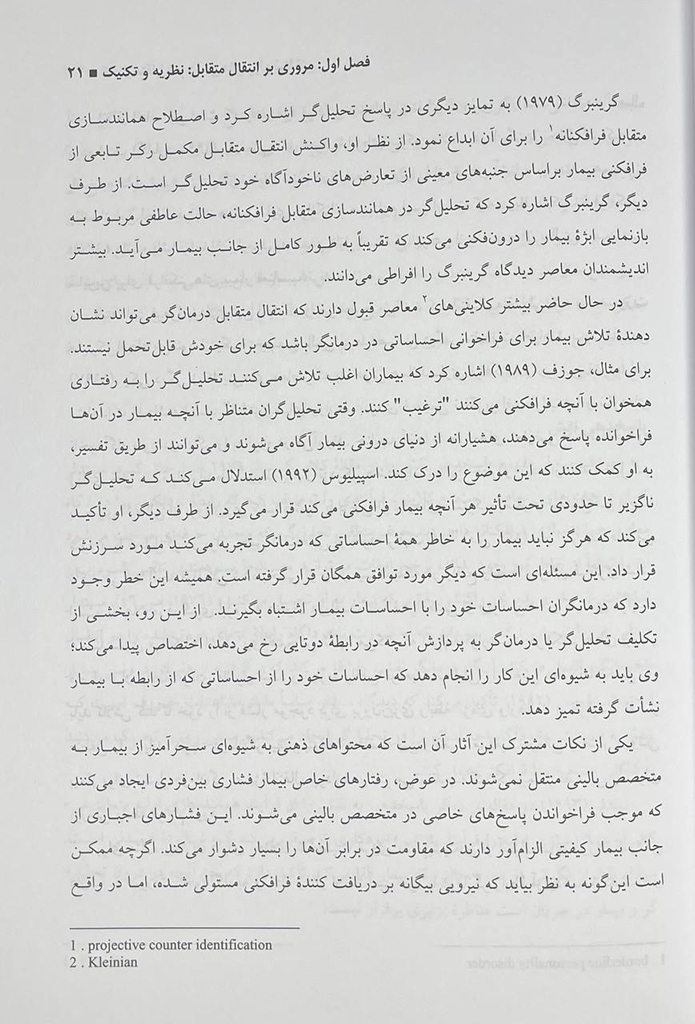 فصل اول: مروری بر انتقال متقابل: نظریه و تکنیک ■ ۲۱
گرینبرگ (۱۹۷۹) به تمایز دیگری در پاسخ تحلیل‌گر اشاره کرد و اصطلاح همانندسازی
متقابل فرافکنانه۱ را برای آن ابداع نمود. از نظر او، واکنش انتقال متقابل مکمل رکر تابعی از
فرافکنی بیمار براساس جنبه‌های معینی از تعارض‌های ناخودآگاه خود تحلیل‌گر است. از طرف
دیگر، گرینبرگ اشاره کرد که تحلیل‌گر در همانندسازی متقابل فرافکنانه، حالت عاطفی مربوط به
بازنمایی ابژهٔ بیمار را درون‌فکنی می‌کند که تقریباً به طور کامل از جانب بیمار می‌آید. بیشتر
اندیشمندان معاصر دیدگاه گرینبرگ را افراطی می‌دانند.
در حال حاضر بیشتر کلاینی‌های۲ معاصر قبول دارند که انتقال متقابل درمان‌گر می‌تواند نشان
دهندهٔ تلاش بیمار برای فراخوانی احساساتی در درمانگر باشد که برای خودش قابل‌تحمل نیستند.
برای مثال، جوزف (۱۹۸۹) اشاره کرد که بیماران اغلب تلاش می‌کنند تحلیل‌گر را به رفتاری
همخوان با آنچه فرافکنی می‌کنند "ترغیب" کنند. وقتی تحلیل‌گران متناظر با آنچه بیمار در آن‌ها
فراخوانده پاسخ می‌دهند، هشیارانه از دنیای درونی بیمار آگاه می‌شوند و می‌توانند از طریق تفسیر،
به او کمک کنند که این موضوع را درک کند. اسپیلیوس (۱۹۹۲) استدلال می‌کند که تحلیل‌گر
ناگزیر تا حدودی تحت تأثیر هر آنچه بیمار فرافکنی می‌کند قرار می‌گیرد. از طرف دیگر، او تأکید
می‌کند که هرگز نباید بیمار را به خاطر همهٔ احساساتی که درمانگر تجربه می‌کند مورد سرزنش
قرار داد. این مسئله‌ای است که دیگر مورد توافق همگان قرار گرفته است. همیشه این خطر وجود
دارد که درمانگران احساسات خود را با احساسات بیمار اشتباه بگیرند. از این رو، بخشی از
تکلیف تحلیل‌گر یا درمان‌گر به پردازش آنچه در رابطهٔ دوتایی رخ می‌دهد، اختصاص پیدا می‌کند؛
وی باید به شیوه‌ای این کار را انجام دهد که احساسات خود را از احساساتی که از رابطه با بیمار
نشأت گرفته تمیز دهد.
یکی از نکات مشترک این آثار آن است که محتواهای ذهنی به شیوه‌ای سحرآمیز از بیمار به
متخصص بالینی منتقل نمی‌شوند. در عوض، رفتارهای خاص بیمار فشاری بین‌فردی ایجاد می‌کنند
که موجب فراخواندن پاسخ‌های خاصی در متخصص بالینی می‌شوند. این فشارهای اجباری از
جانب بیمار کیفیتی الزام‌آور دارند که مقاومت در برابر آن‌ها را بسیار دشوار می‌کند. اگرچه ممکن
است این‌گونه به نظر بیاید که نیرویی بیگانه بر دریافت کنندهٔ فرافکنی مستولی شده، اما در واقع
1 . projective counter identification
2 . Kleinian